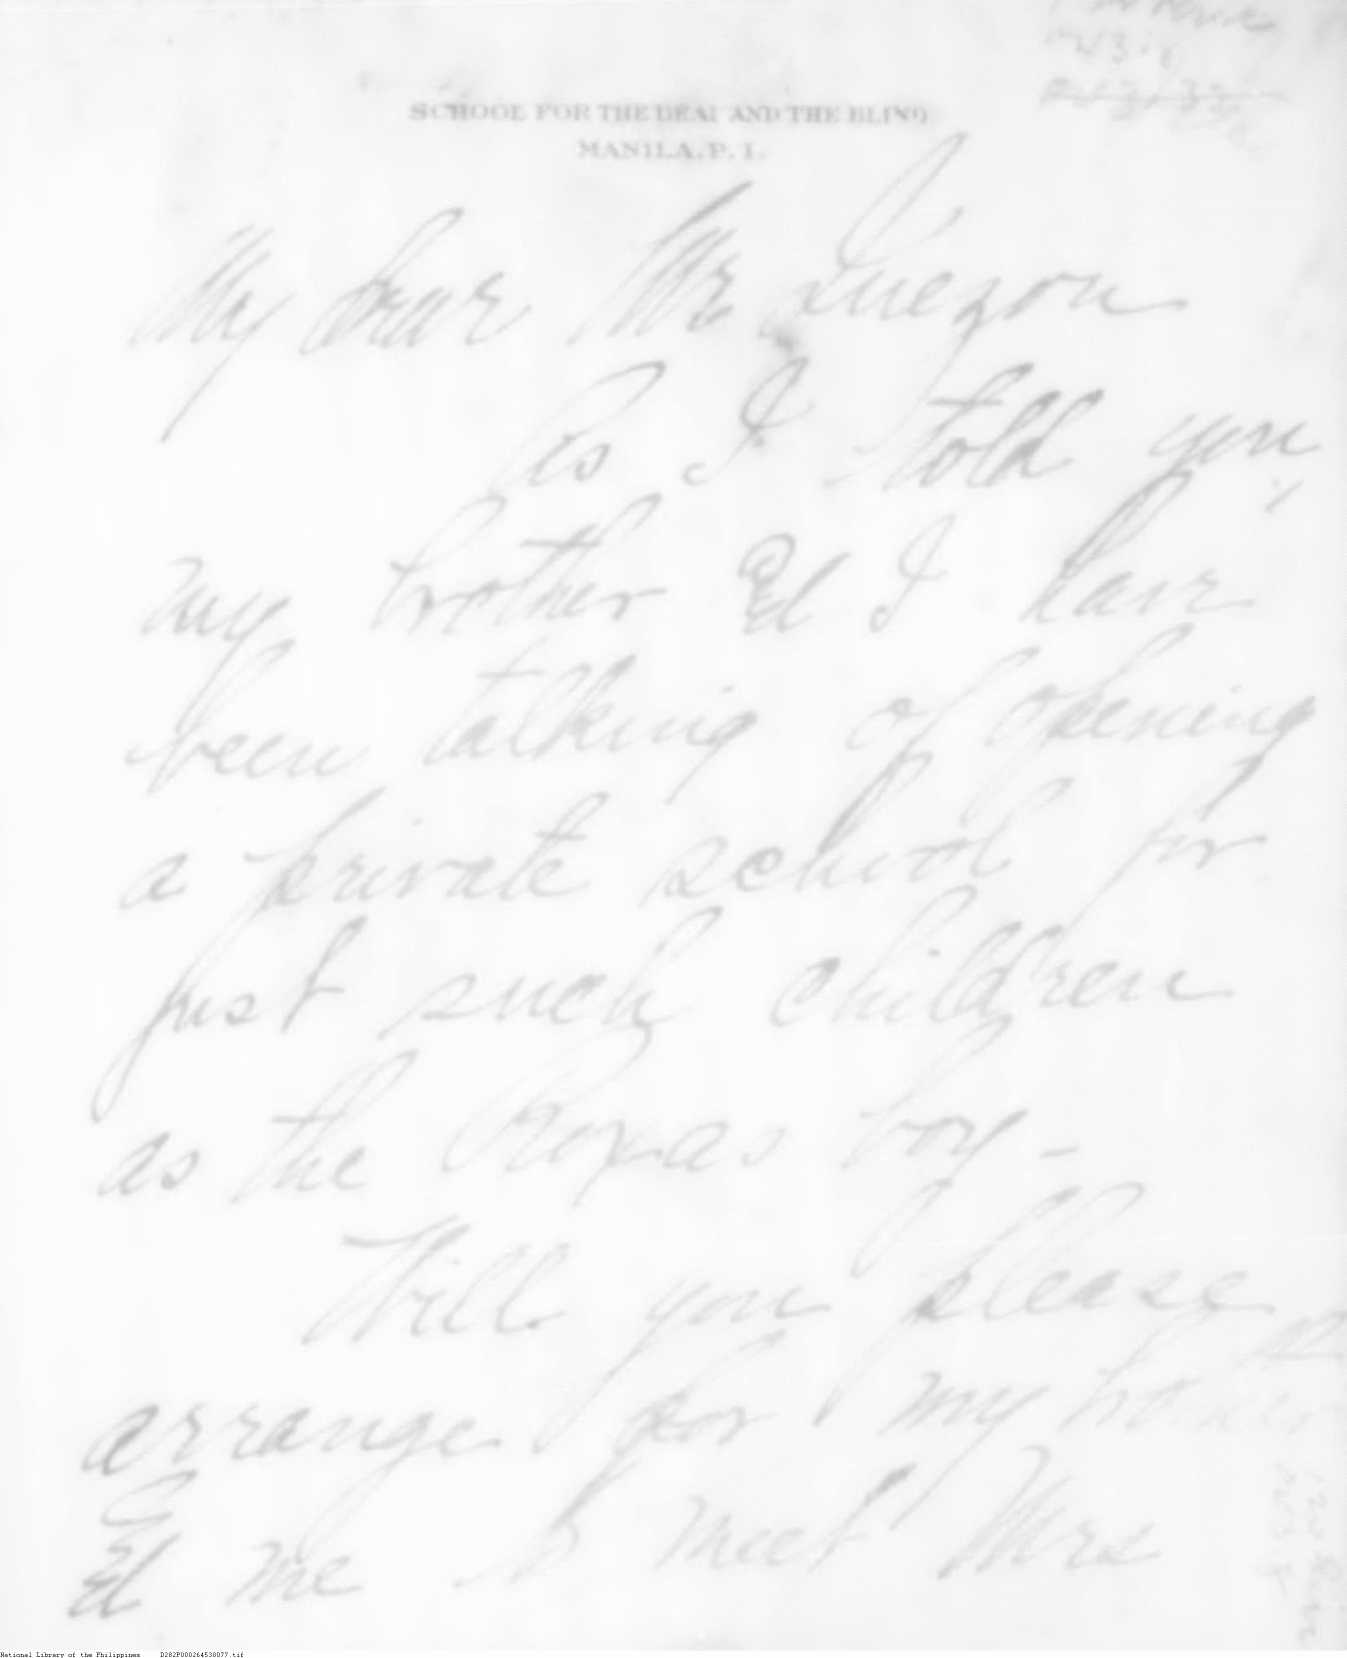 SCHOOL FOR THE DEAF AND THE BLIND
MANILA, P. I.
My dear Mr Quezon
As I told you,
my brother Ed I have
been talking of opening
a private school for
just such children
as the Roxas boy -
Will you please
arrange for my brother
Ed me to meet Mrs
National Library of the Philippines D282P000264530077.tif